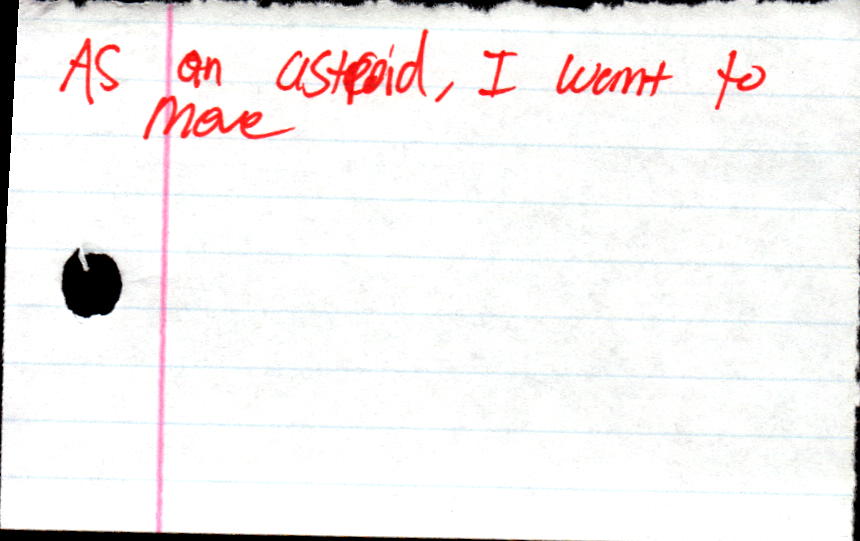 As an asteroid, I want to
move